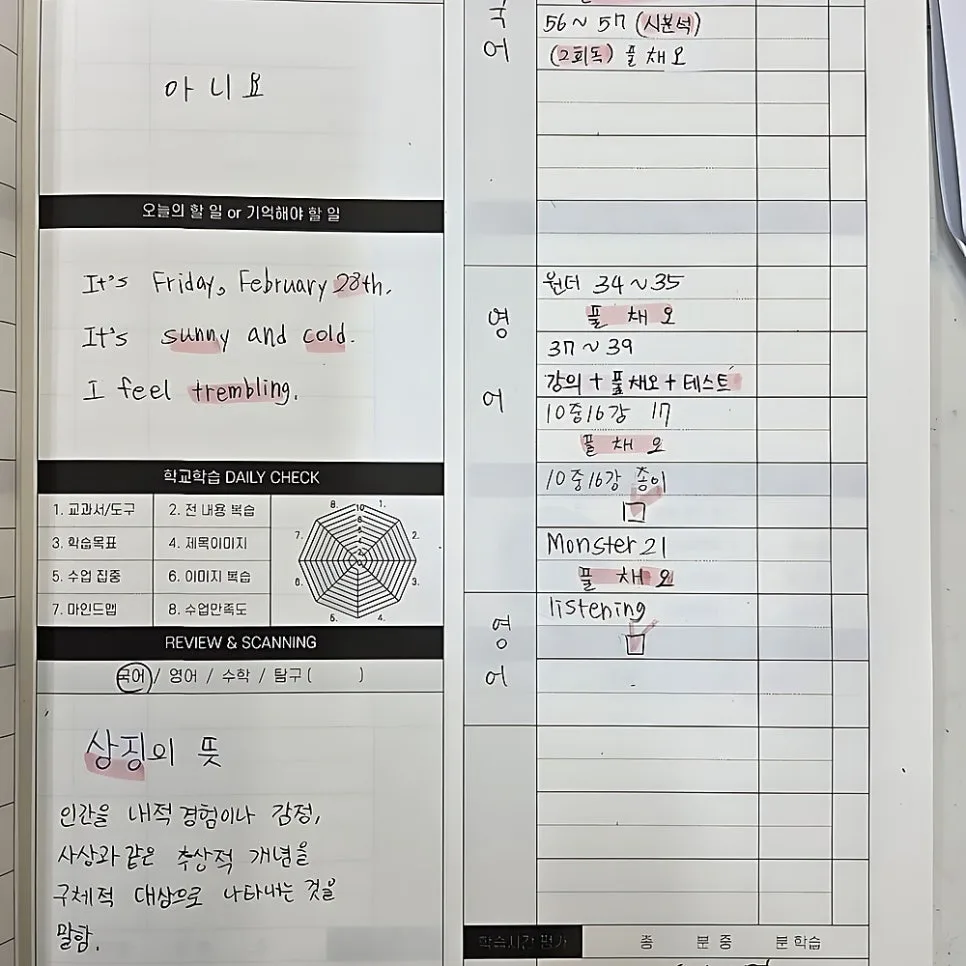 아니요
오늘의 할 일 or 기억해야 할 일
It's Friday, February 28th.
It's sunny and cold.
I feel trembling.
학교학습 DAILY CHECK
1. 교과서/도구
2. 전 내용 복습
3. 학습목표
4. 제목이미지
5. 수업 집중
6. 이미지 복습
7. 마인드맵
8. 수업만족도
8. 1.
7. 2.
6. 3.
5. 4.
10
REVIEW & SCANNING
국어 / 영어 / 수학 / 탐구 ( )
상징의 뜻
인간을 내적 경험이나 감정,
사상과 같은 추상적 개념을
구체적 대상으로 나타내는 것을
말함.
국어
56~57 (시분석)
(2회독) 풀채오
영어
원더 34~35
풀채오
37~39
강의 + 풀채오 + 테스트
10중16강 17
풀채오
10중16강 종이
Monster 21
풀채오
영어
listening
학습시간 평가
총 분 중 분 학습